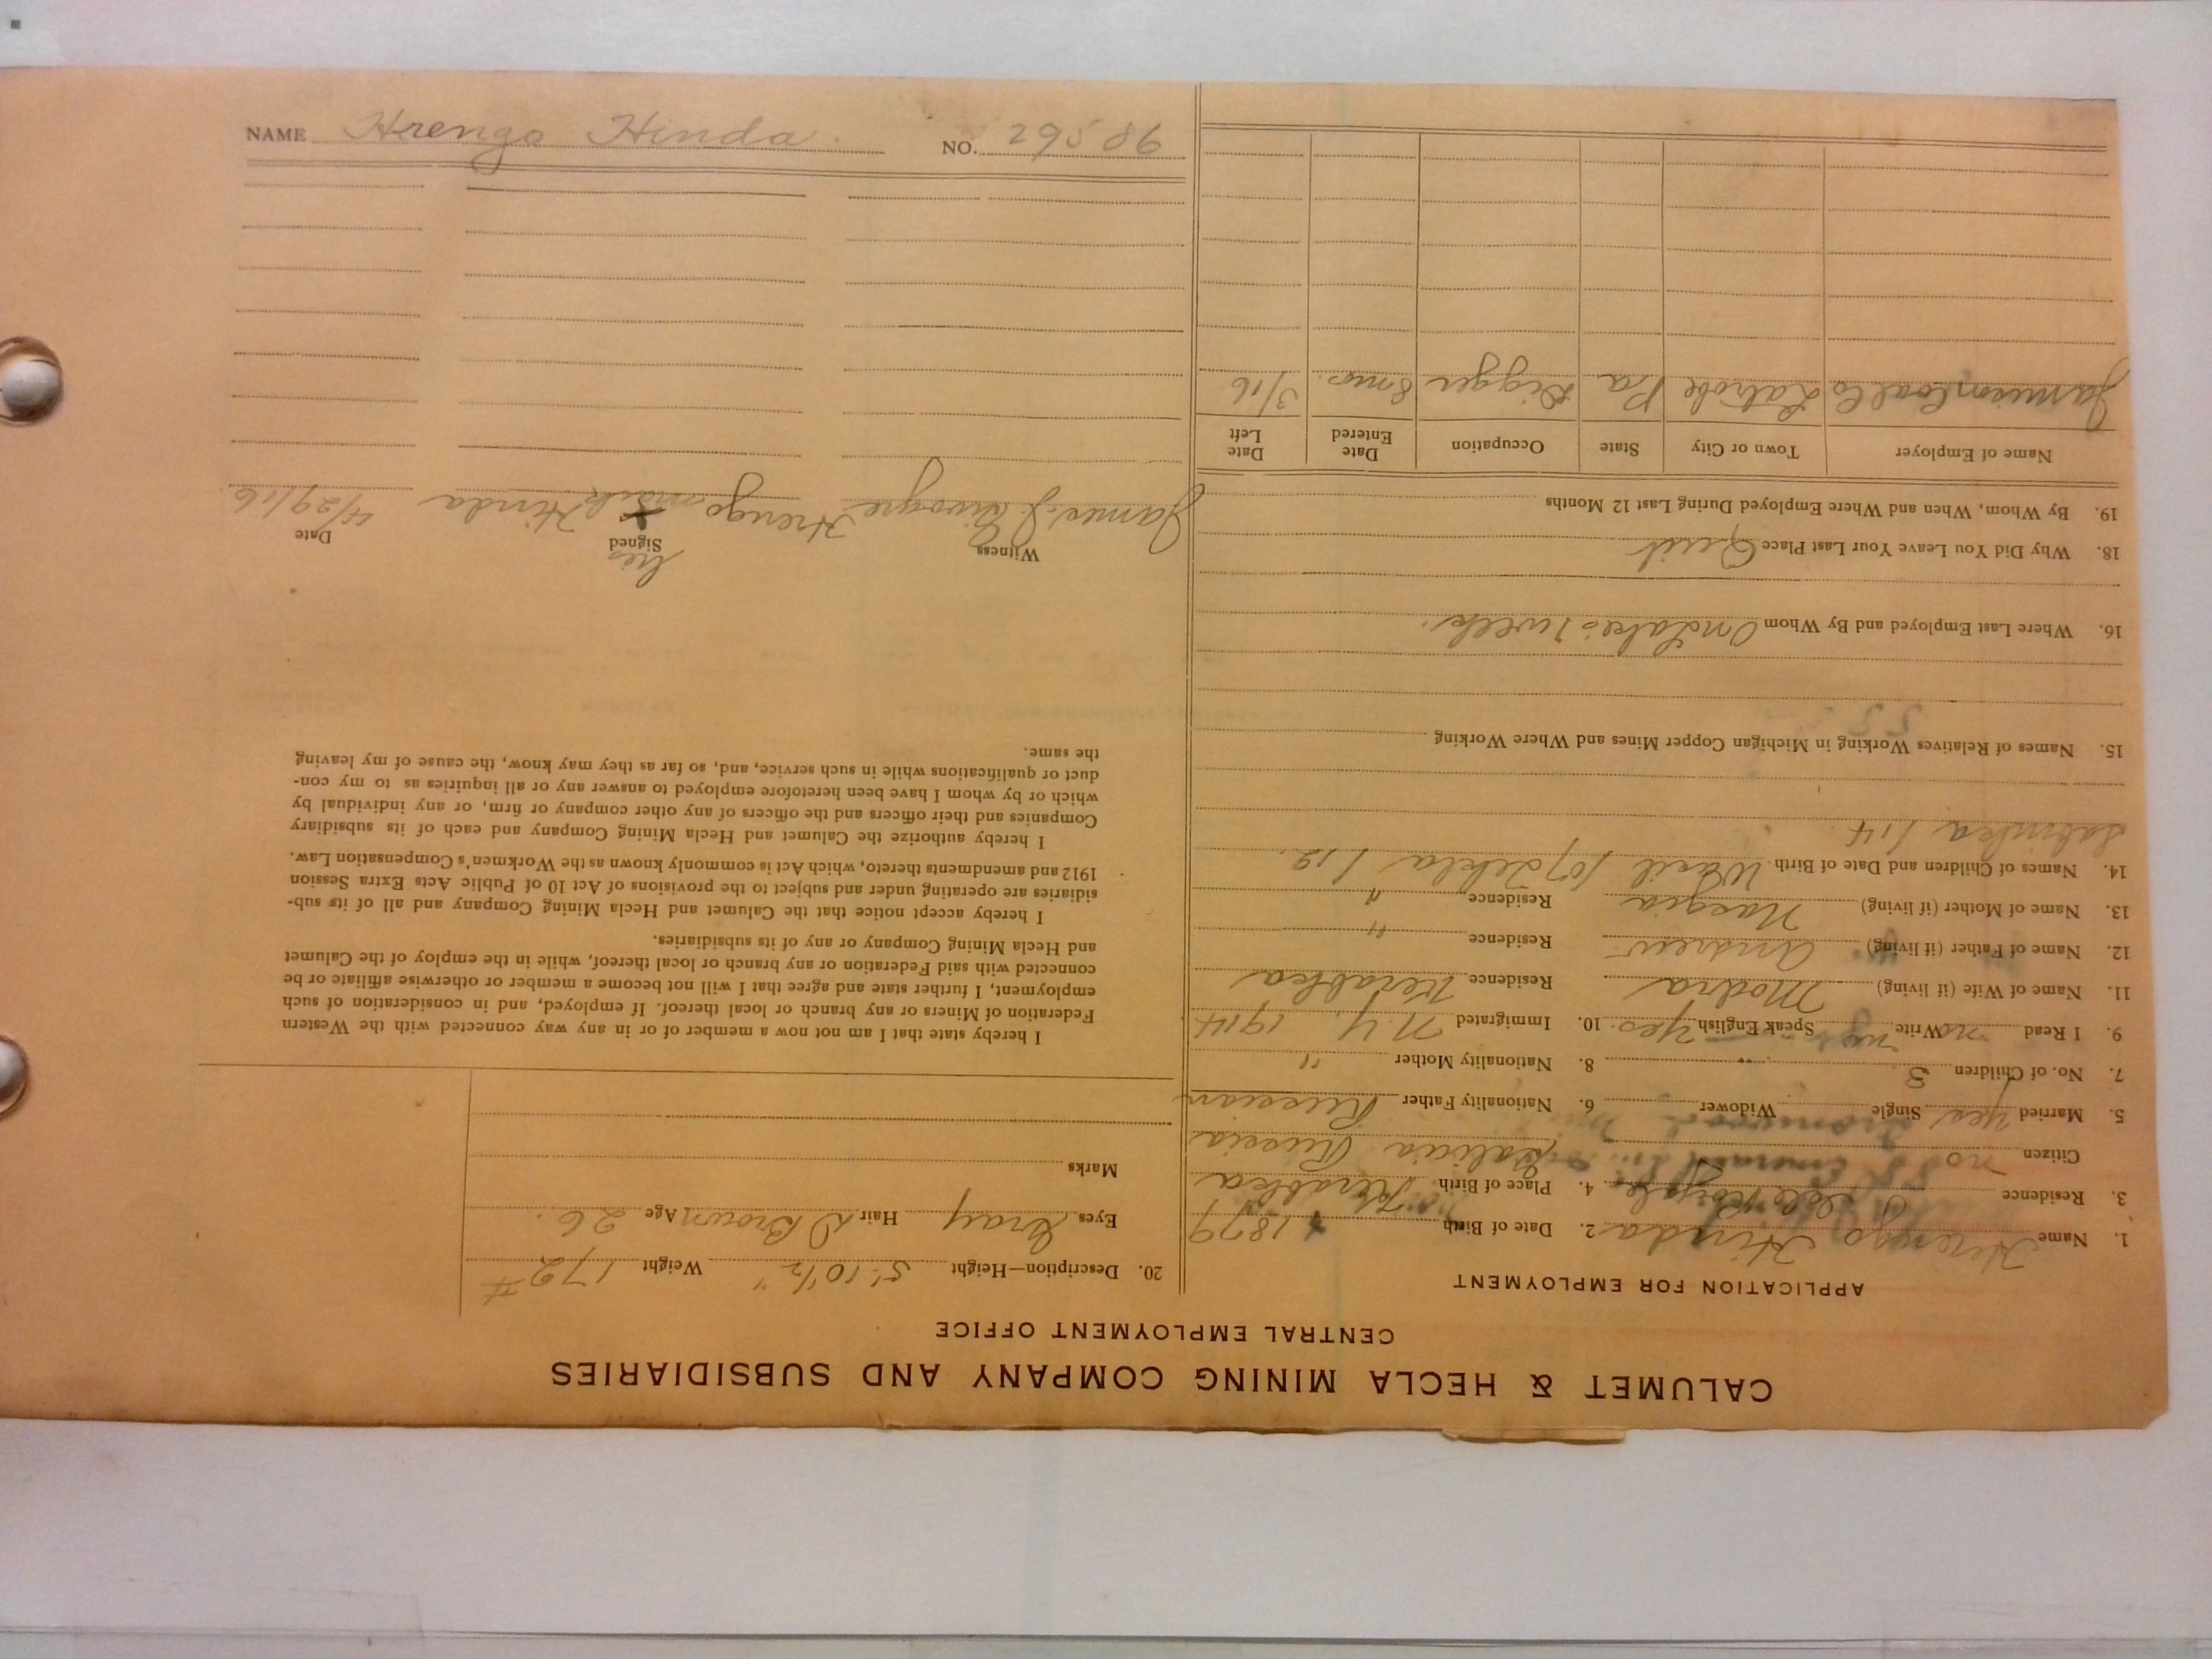 CALUMET & HECLA MINING COMPANY AND SUBSIDIARIES
CENTRAL EMPLOYMENT OFFICE
APPLICATION FOR EMPLOYMENT
1. Name Hrengo Hinda 2. Date of Birth 1879
3. Residence 4. Place of Birth
Citizen no Galicia Russia
5. Married yes Single Widower 6. Nationality Father Russian
7. No. of Children 3 8. Nationality Mother "
9. I Read no Write no Speak English yes 10. Immigrated N.Y. 1914
11. Name of Wife (if living) Modra Residence Kerabka
12. Name of Father (if living) Andrew Residence "
13. Name of Mother (if living) Residence "
14. Names of Children and Date of Birth Wasil /07 Tekla /12.
/14
15. Names of Relatives Working in Michigan Copper Mines and Where Working
16. Where Last Employed and By Whom On Lakes 1 week.
18. Why Did You Leave Your Last Place Quit
19. By Whom, When and Where Employed During Last 12 Months
Name of Employer Town or City State Occupation Date Entered Date Left
Jamison Coal Co Latrobe Pa Digger 8 mos. 3/16
20. Description—Height 5' 10 1/2" Weight 172 #
Eyes Gray Hair D Brown Age 26.
Marks
I hereby state that I am not now a member of or in any way connected with the Western
Federation of Miners or any branch or local thereof. If employed, and in consideration of such
employment, I further state and agree that I will not become a member or otherwise affiliate or be
connected with said Federation or any branch or local thereof, while in the employ of the Calumet
and Hecla Mining Company or any of its subsidiaries.
I hereby accept notice that the Calumet and Hecla Mining Company and all of its sub-
sidiaries are operating under and subject to the provisions of Act 10 of Public Acts Extra Session
1912 and amendments thereto, which Act is commonly known as the Workmen's Compensation Law.
I hereby authorize the Calumet and Hecla Mining Company and each of its subsidiary
Companies and their officers and the officers of any other company or firm, or any individual by
which or by whom I have been heretofore employed to answer any or all inquiries as to my con-
duct or qualifications while in such service, and, so far as they may know, the cause of my leaving
the same.
Witness Signed Date
his
James J. Hrengo x Hinda 4/29/16
mark
NAME Hrengo Hinda. NO. 29586